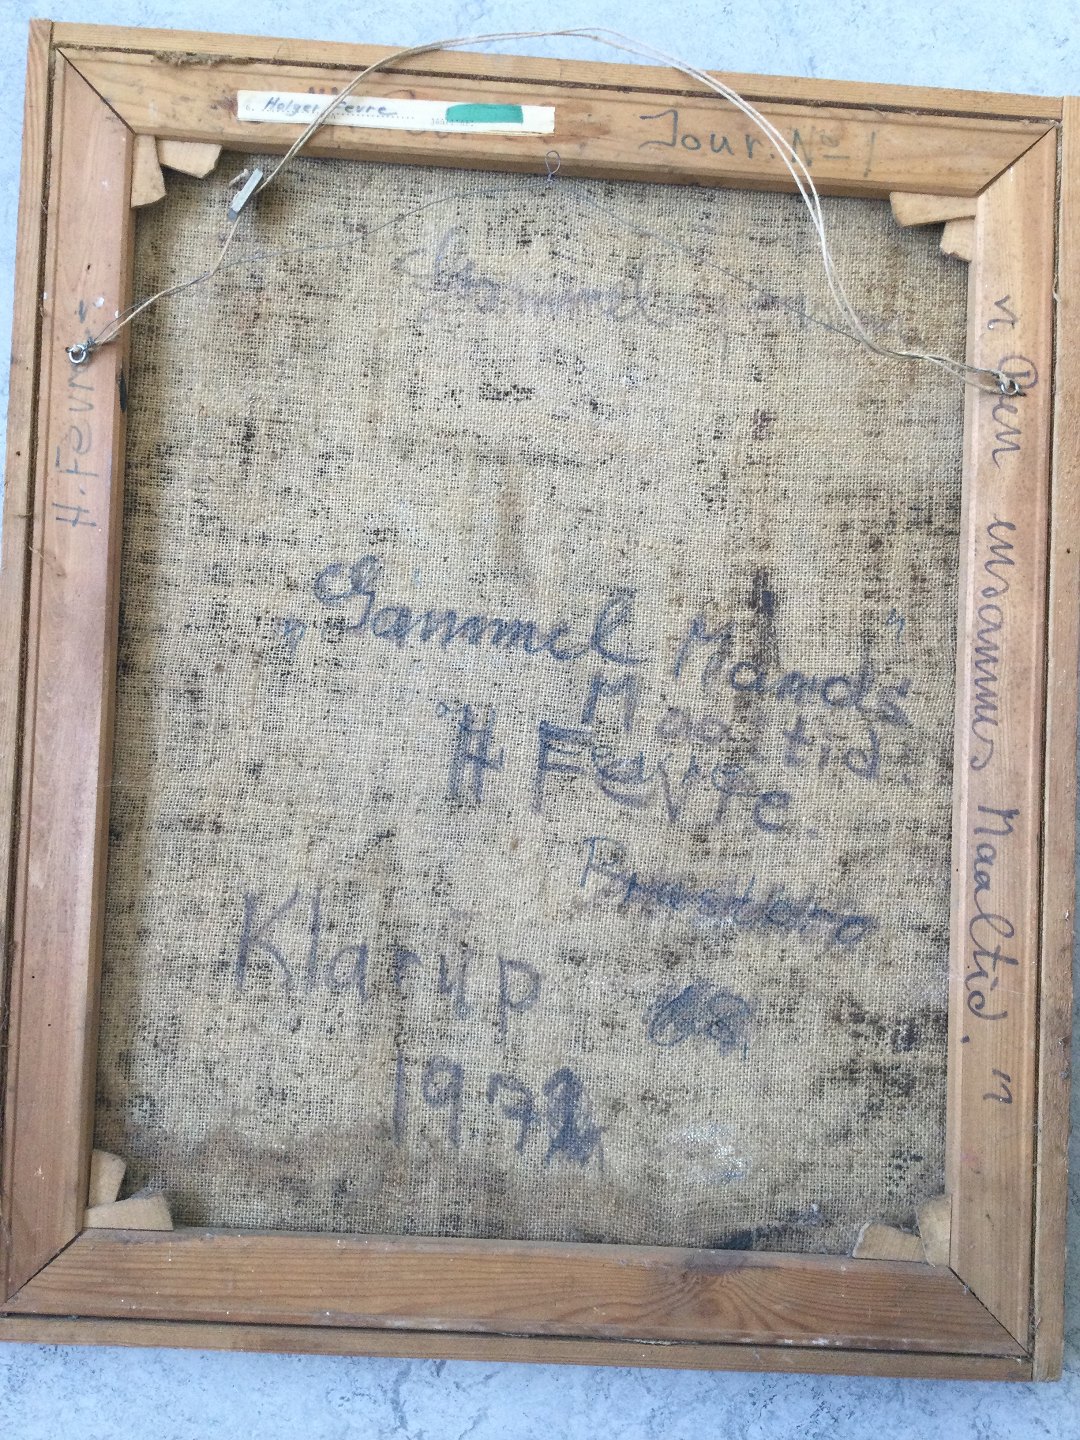 6. Holger Fevre
Jour. No 1
H. Fevre
Gammel
" Gammel Mands "
Maaltid.
H Fevre.
Klarup
1972
" Den ensammes Maaltid. "